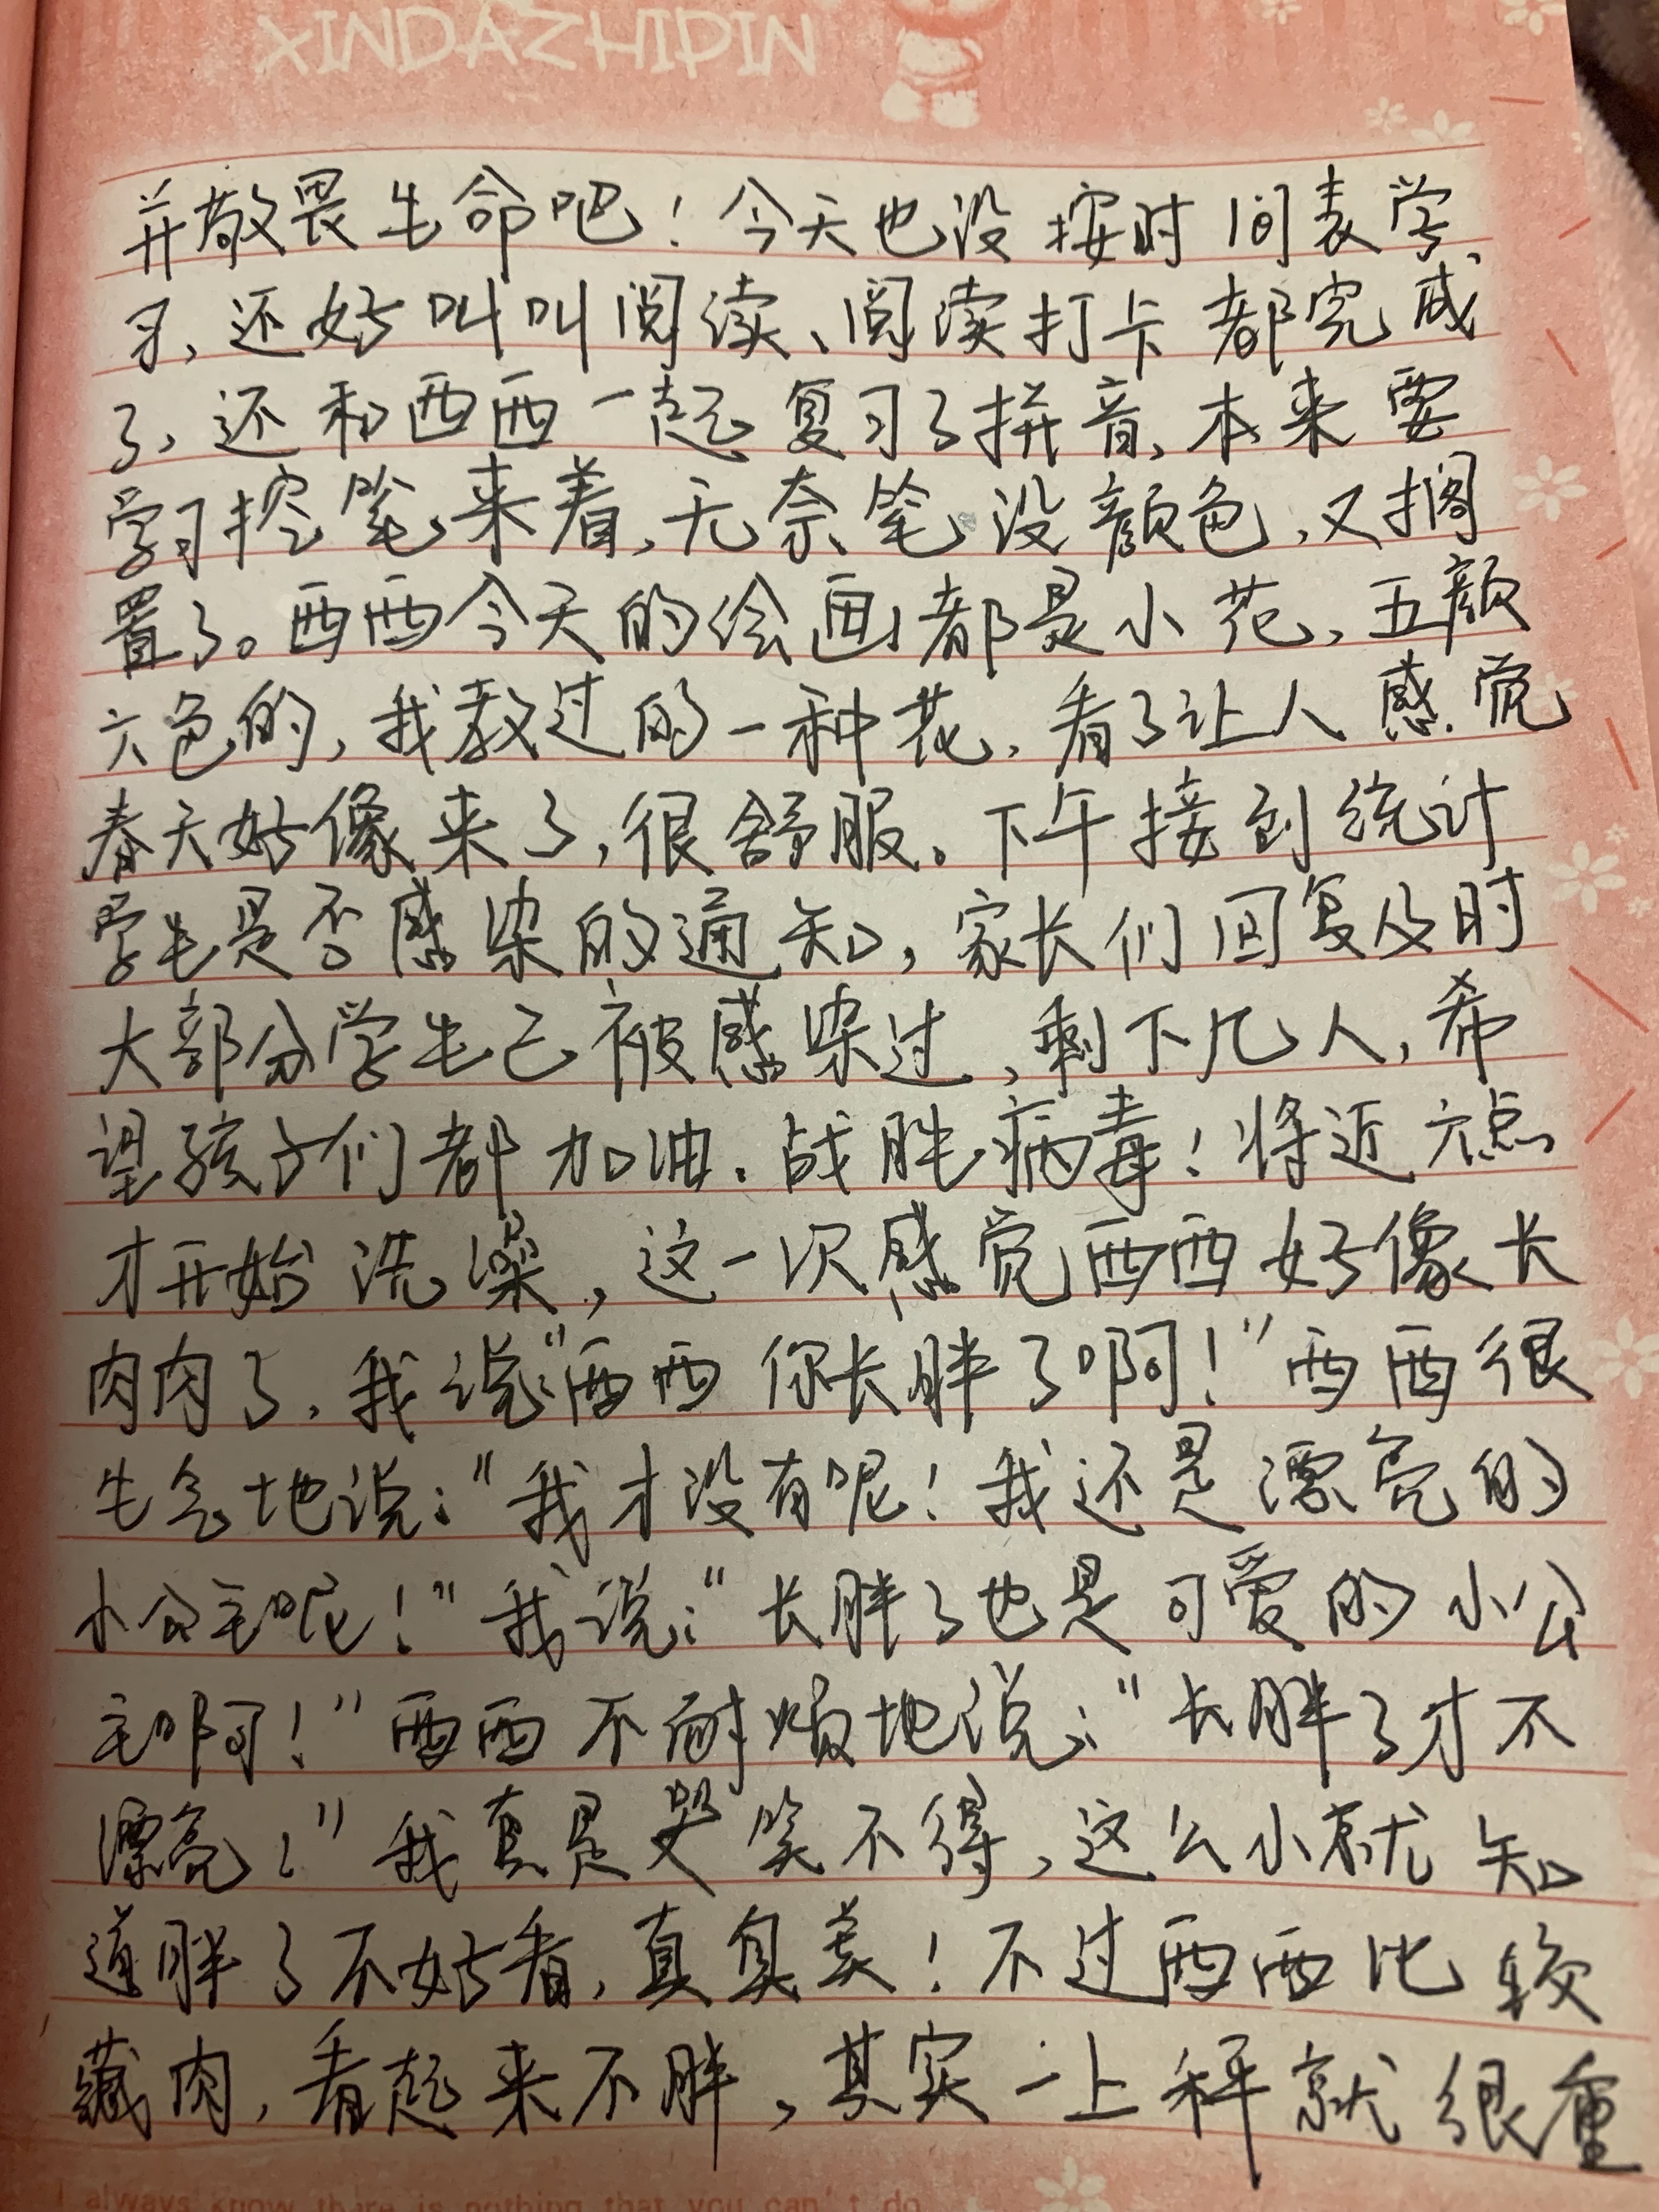 XINDAZHIPIN
并敬畏生命吧！今天也没按时间表学
习，还好叫叫阅读、阅读打卡都完成
了，还和西西一起复习了拼音，本来要
学习控笔来着，无奈笔没颜色，又搁
置了。西西今天的绘画都是小花，五颜
六色的，我教过的一种花，看了让人感觉
春天好像来了，很舒服。下午接到统计
学生是否感染的通知，家长们回复及时
大部分学生已被感染过，剩下几人，希
望孩子们都加油．战胜病毒！将近六点
才开始洗澡，这一次感觉西西好像长
肉肉了，我说：“西西你长胖了啊！”西西很
生气地说：“我才没有呢！我还是漂亮的
小公主呢！”我说：“长胖了也是可爱的小公
主啊！”西西不耐烦地说：“长胖了才不
漂亮！”我真是哭笑不得，这么小就知
道胖了不好看，真臭美！不过西西比较
藏肉，看起来不胖，其实一上秤就很重
I always know there is nothing that you can't do